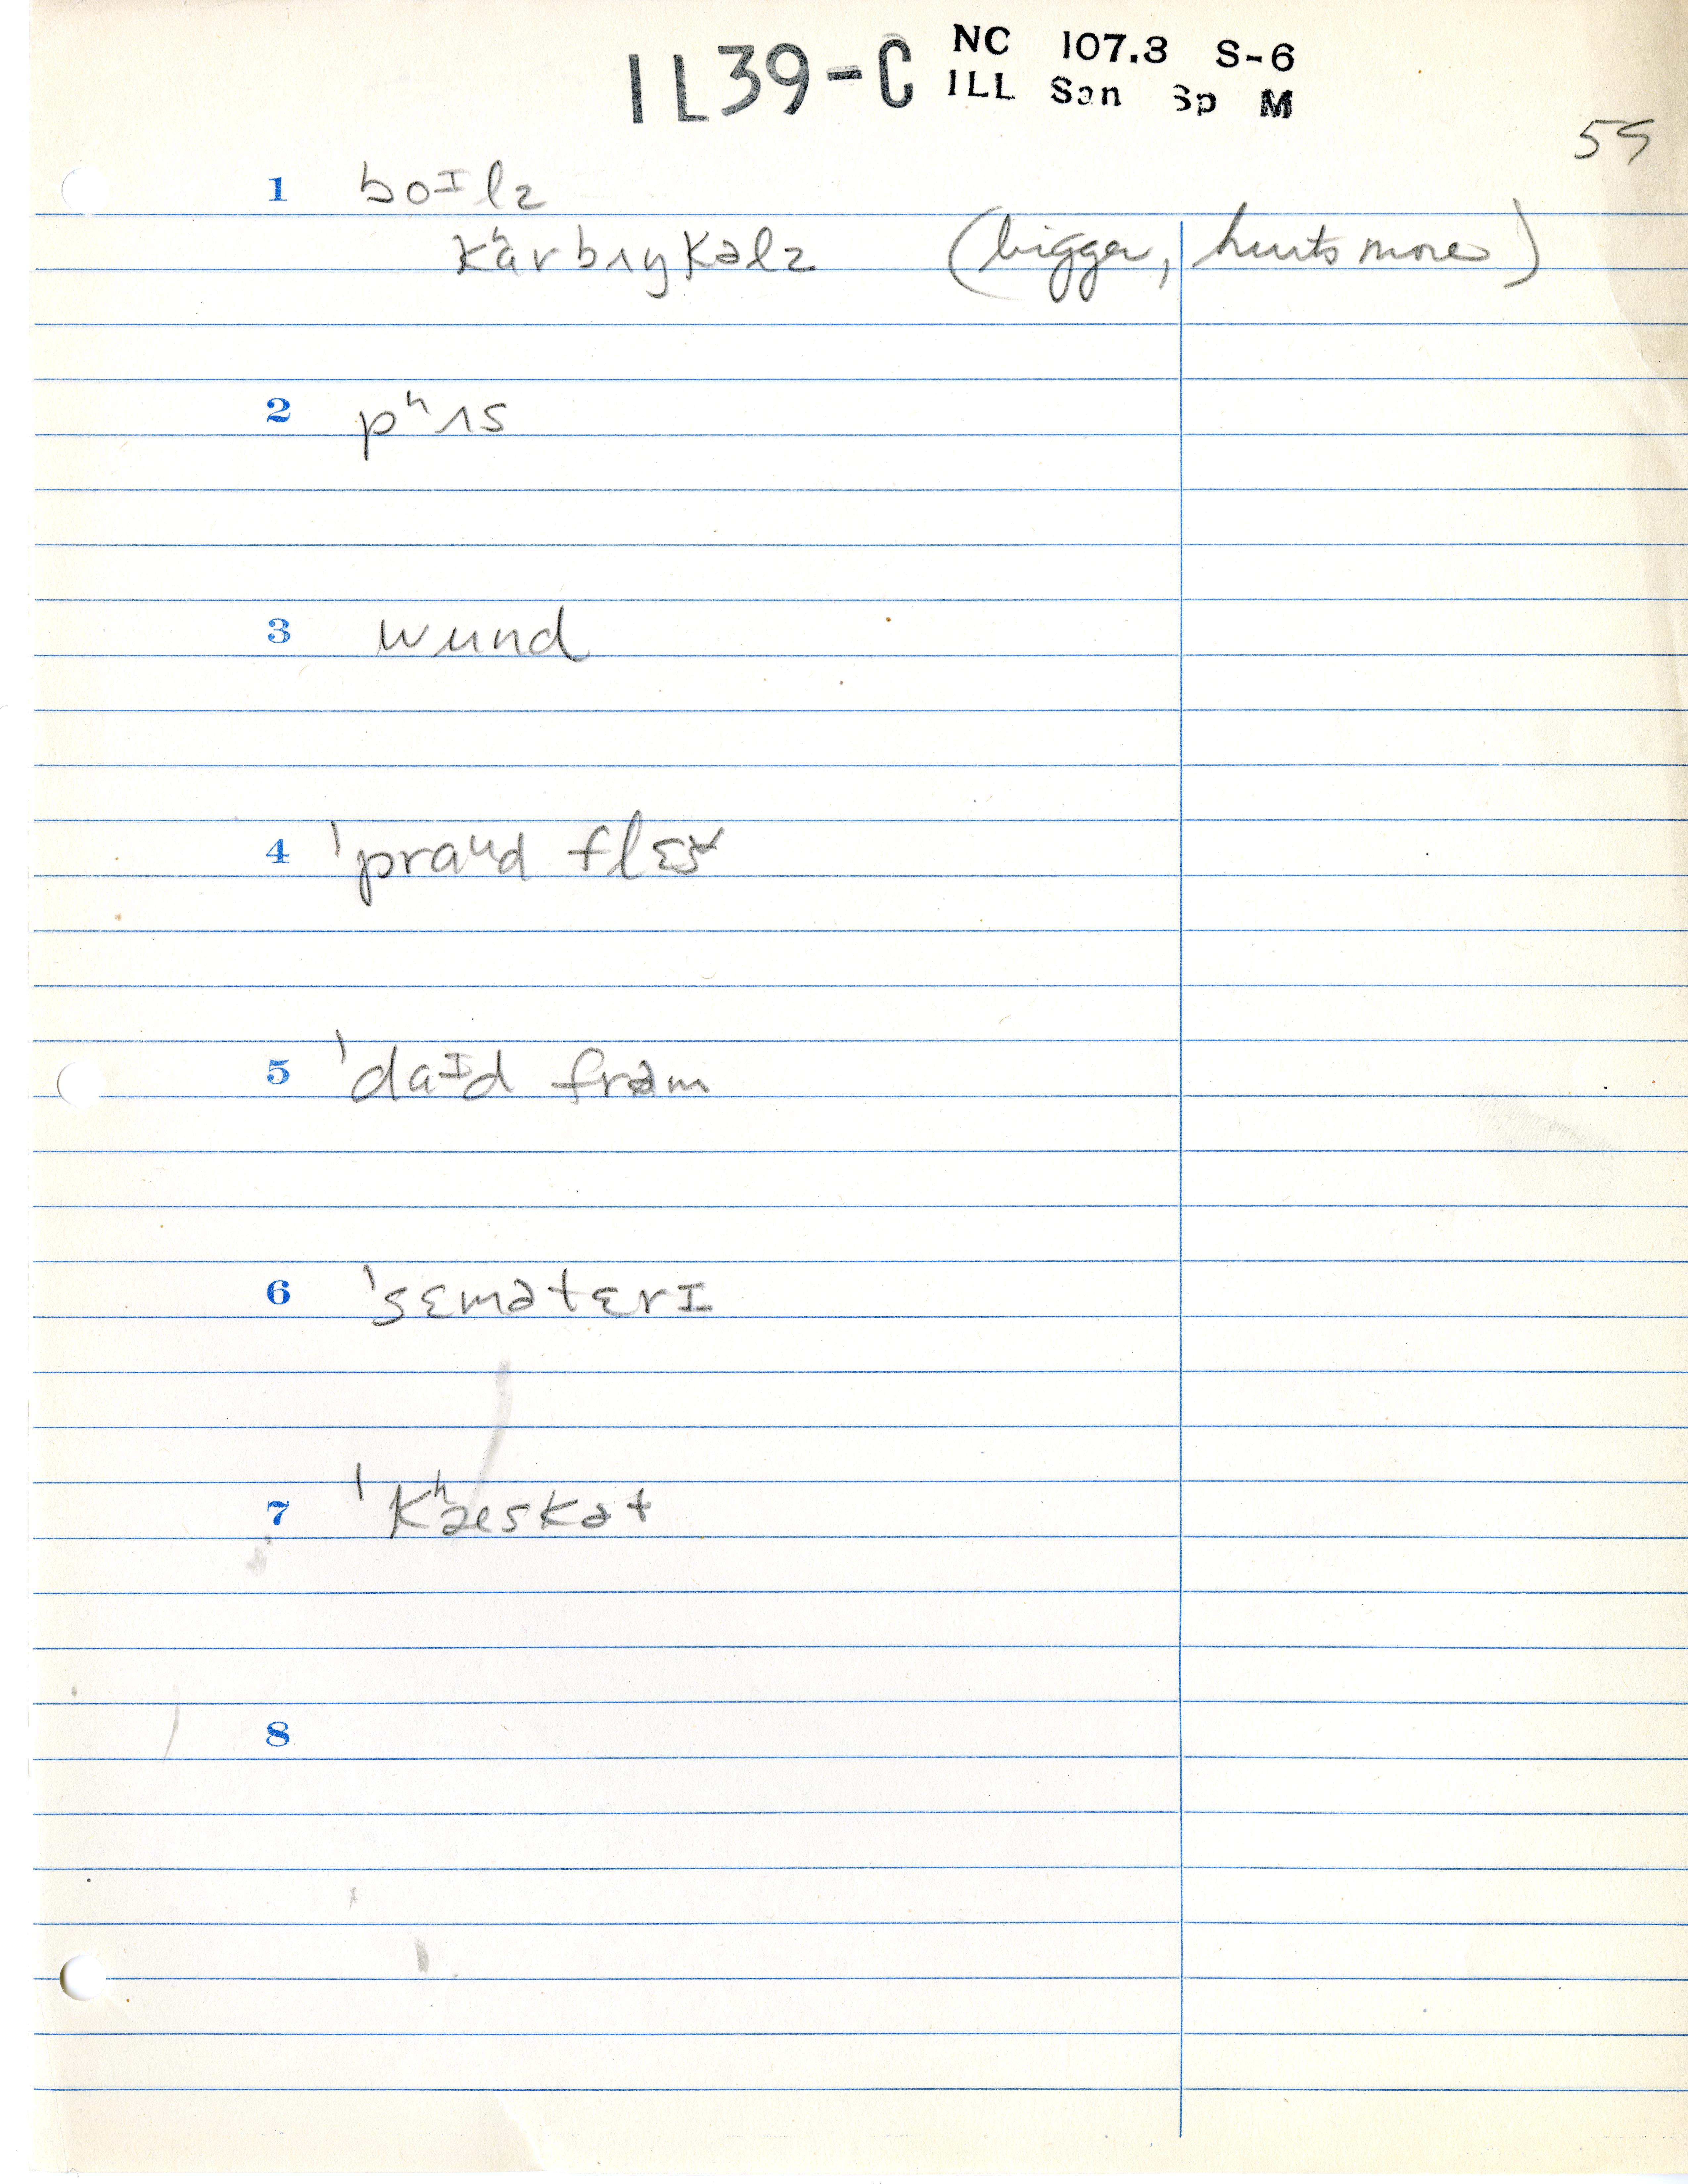 IL39-C NC 107.3 S-6
ILL San Sp M
59
1 boᴵlz
kʰarbɪŋkəlz (bigger, hurts more)
2 pʰʌs
3 wund
4 ˈpraᵘd flɛš
5 ˈdaᴵd frəm
6 ˈsɛmətɛrɪ
7 ˈkʰæskət
8